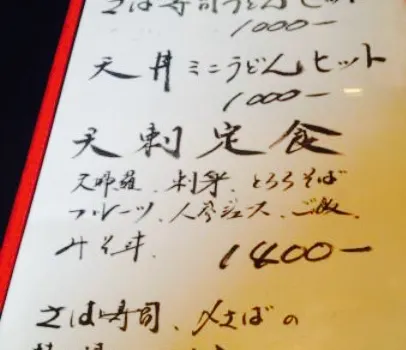 さば寿司うどんセット
1000-
天丼ミニうどんセット
1000-
天刺定食
天ぷら羅、刺身、とろろそば
フルーツ、人参ジュース、ご飯、
みそ汁、 1400-
さば寿司、〆さばの